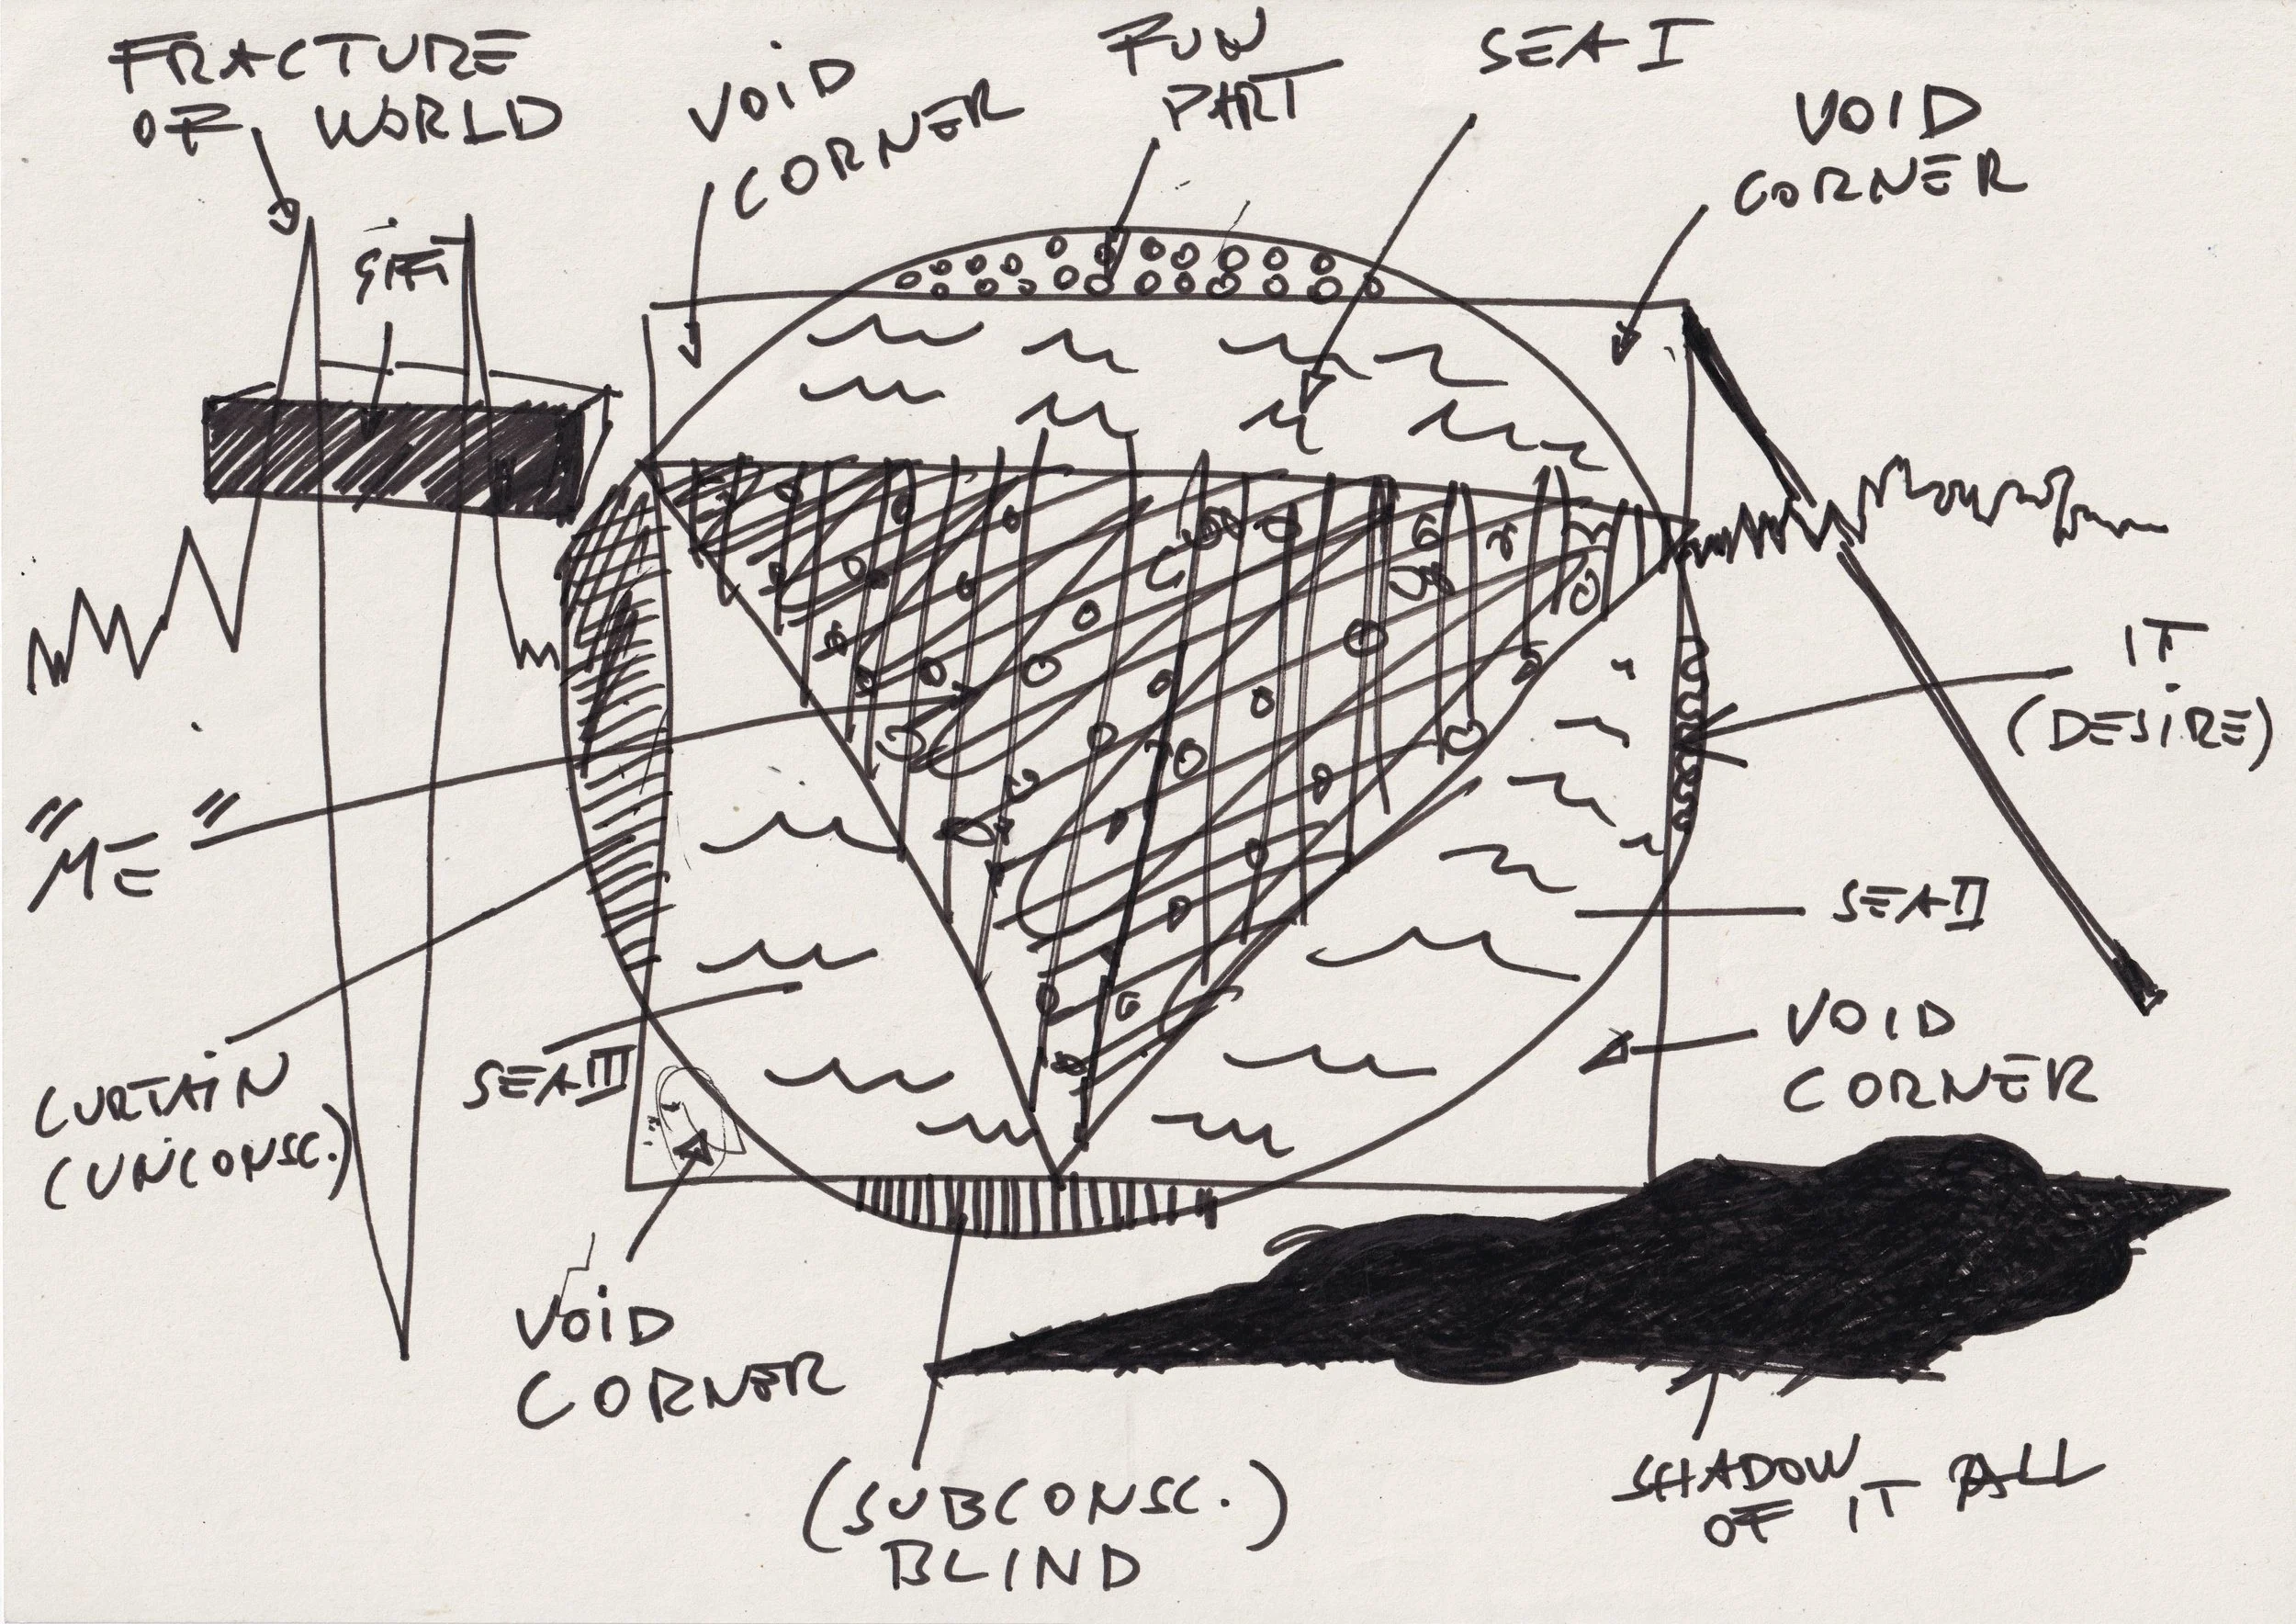 FRACTURE
OF WORLD
VOID
CORNER
FUN
PART
SEA I
VOID
CORNER
IT
(DESIRE)
"ME"
SEA II
VOID
CORNER
SEA III
CURTAIN
(UNCONSC.)
VOID
CORNER
(SUBCONSC.)
BLIND
SHADOW
OF IT ALL